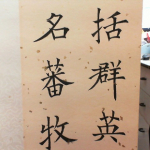 括群英
名蕃牧